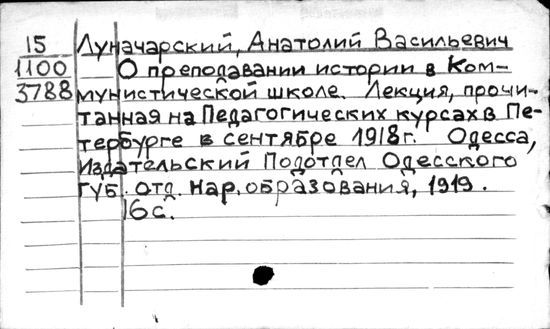 15 Луначарский, Анатолий Васильевич
1100 О преподавании истории в Ком-
3788 мунистической школе. Лекция, прочи-
танная на Педагогических курсах в Пе-
тербурге в сентябре 1918г. Одесса,
Издательский Подотдел Одесского
Губ. отд. нар. образования, 1919.
16с.